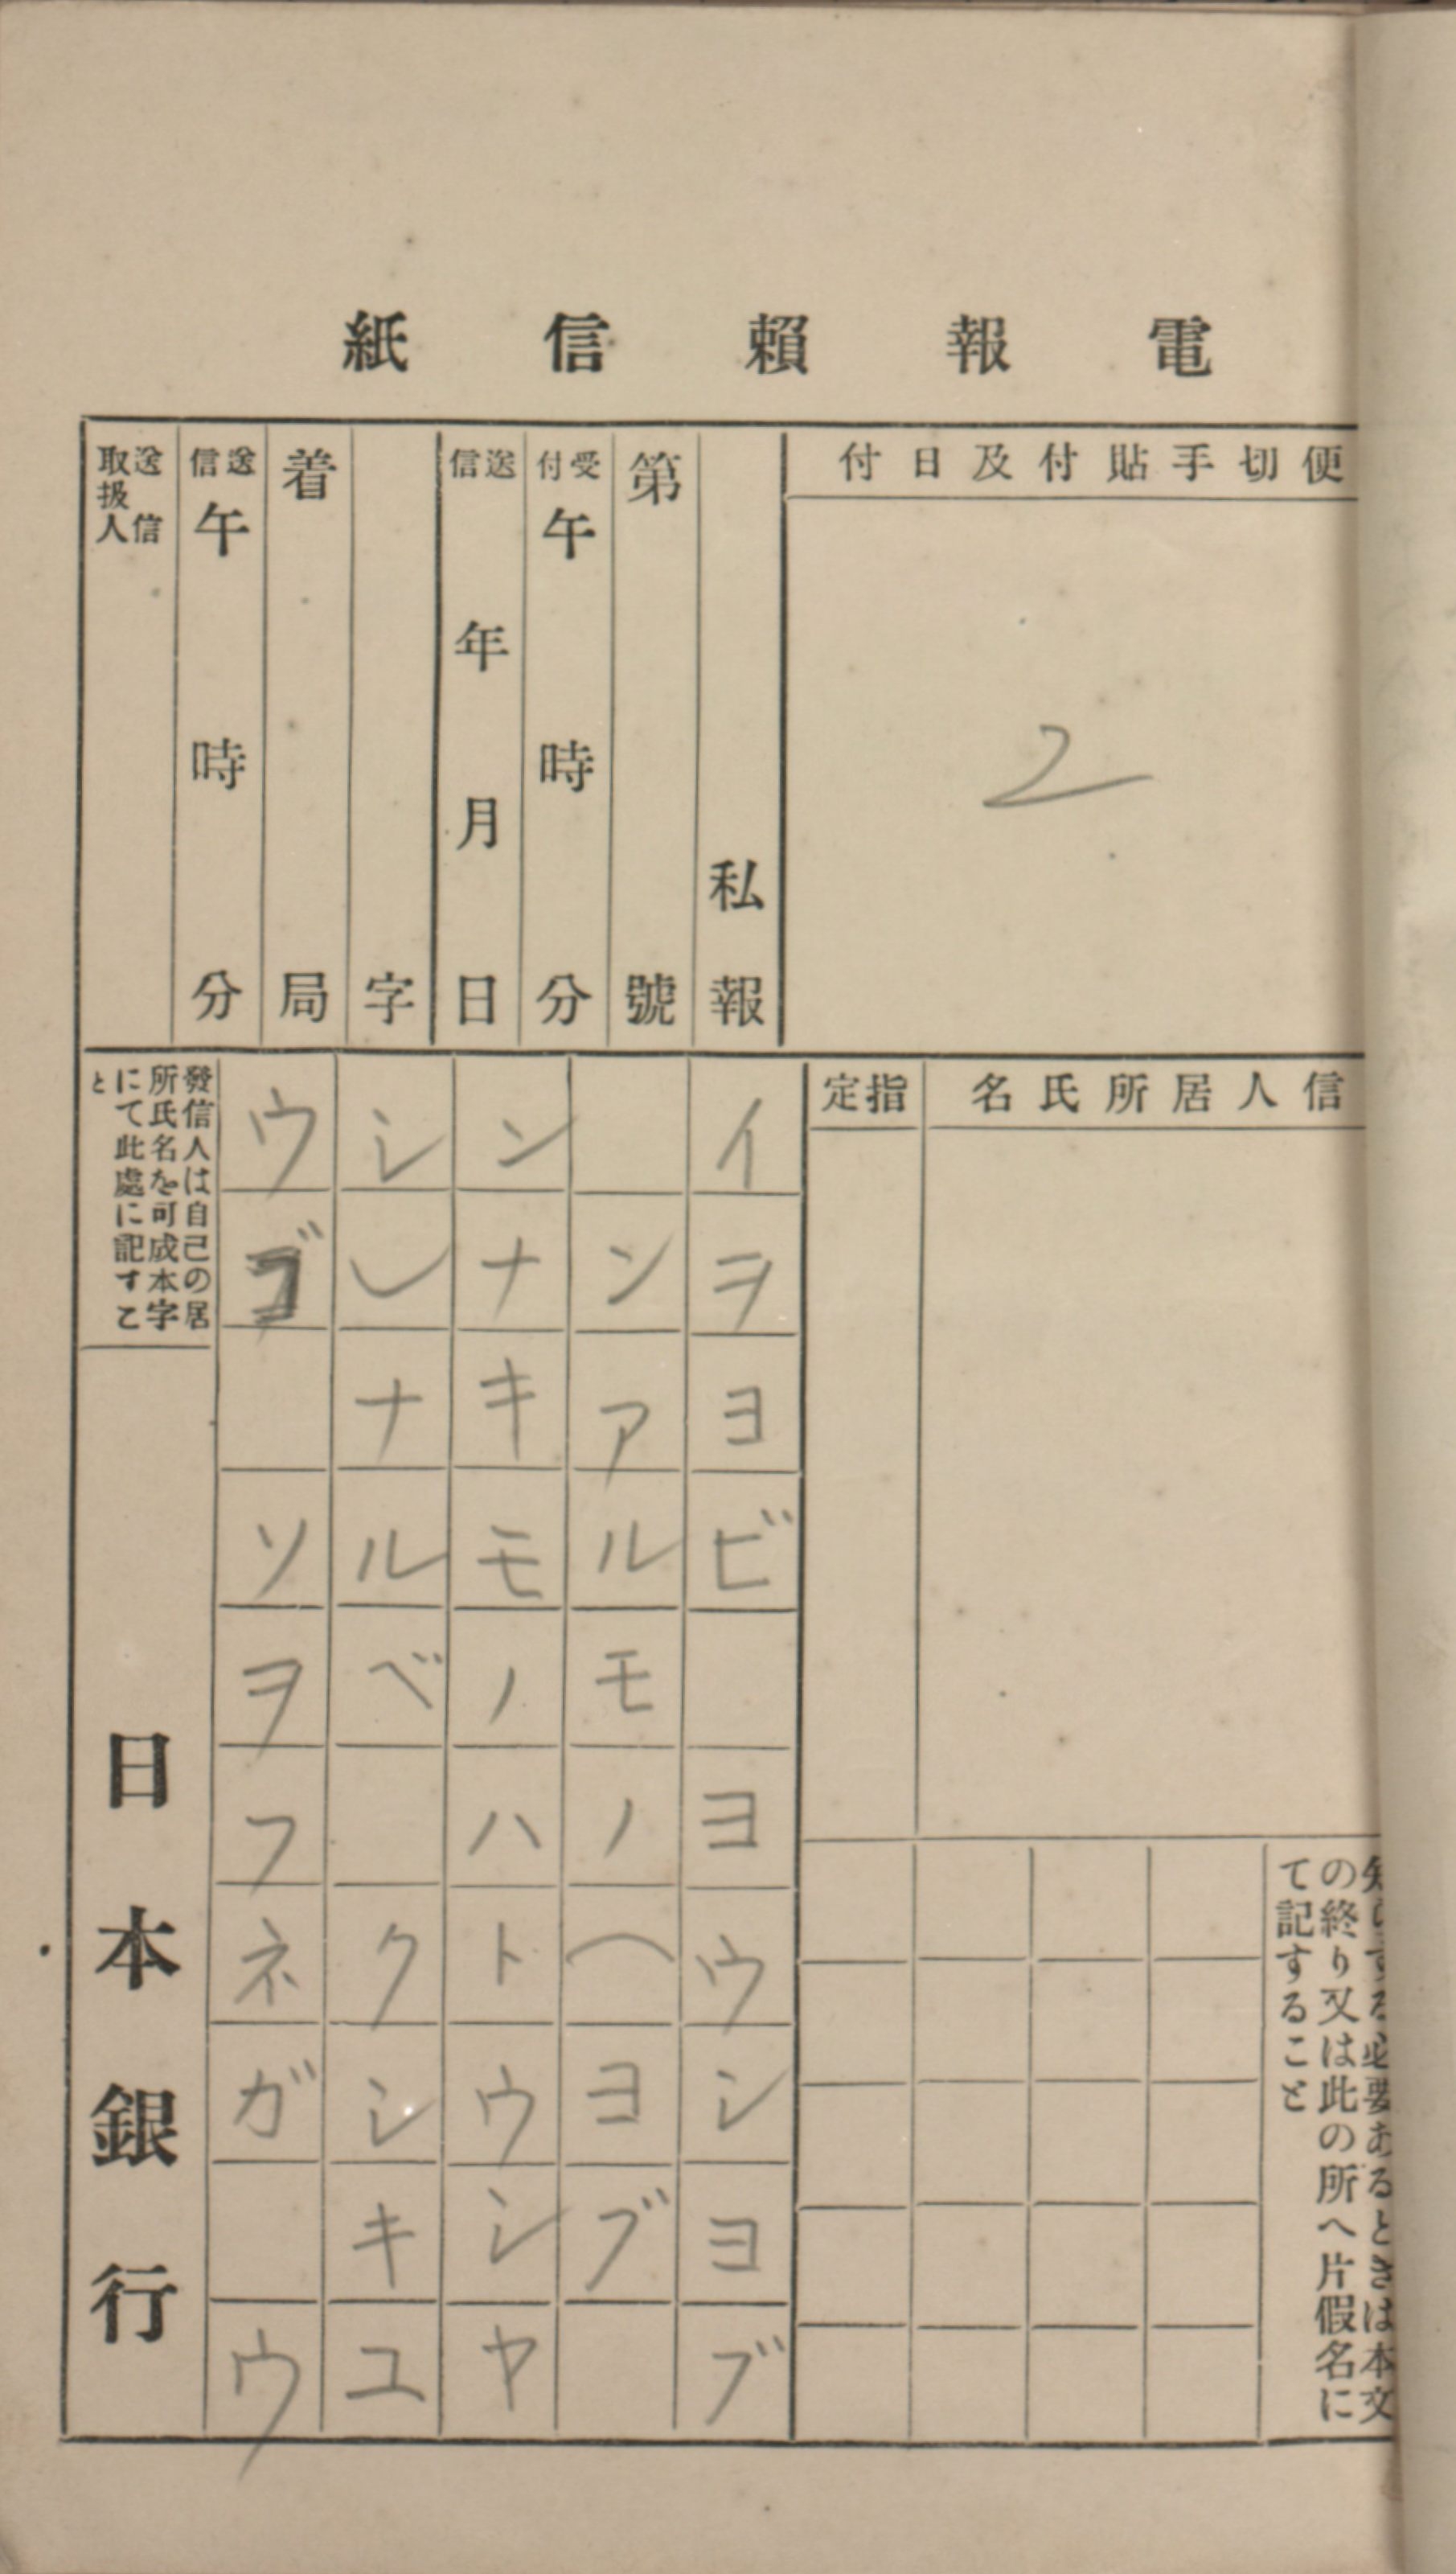 電報頼信紙
便切手貼付及日付
2
私報
第號
受付午時分
送信年月日
字
着局
送信午時分
送信取扱人
信人居所氏名
指定
知らする必要あるときは本文
の終り又は此の所へ片假名に
て記すること
イヲヨビ ヨウシヨブ
ンアルモノヘヨブ
ンナキモノハトウシヤ
シシナルベ クシキユ
ウゴ ソヲフネガ ウ
發信人は自己の居
所氏名を可成本字
にて此處に記すこ
と
日本銀行